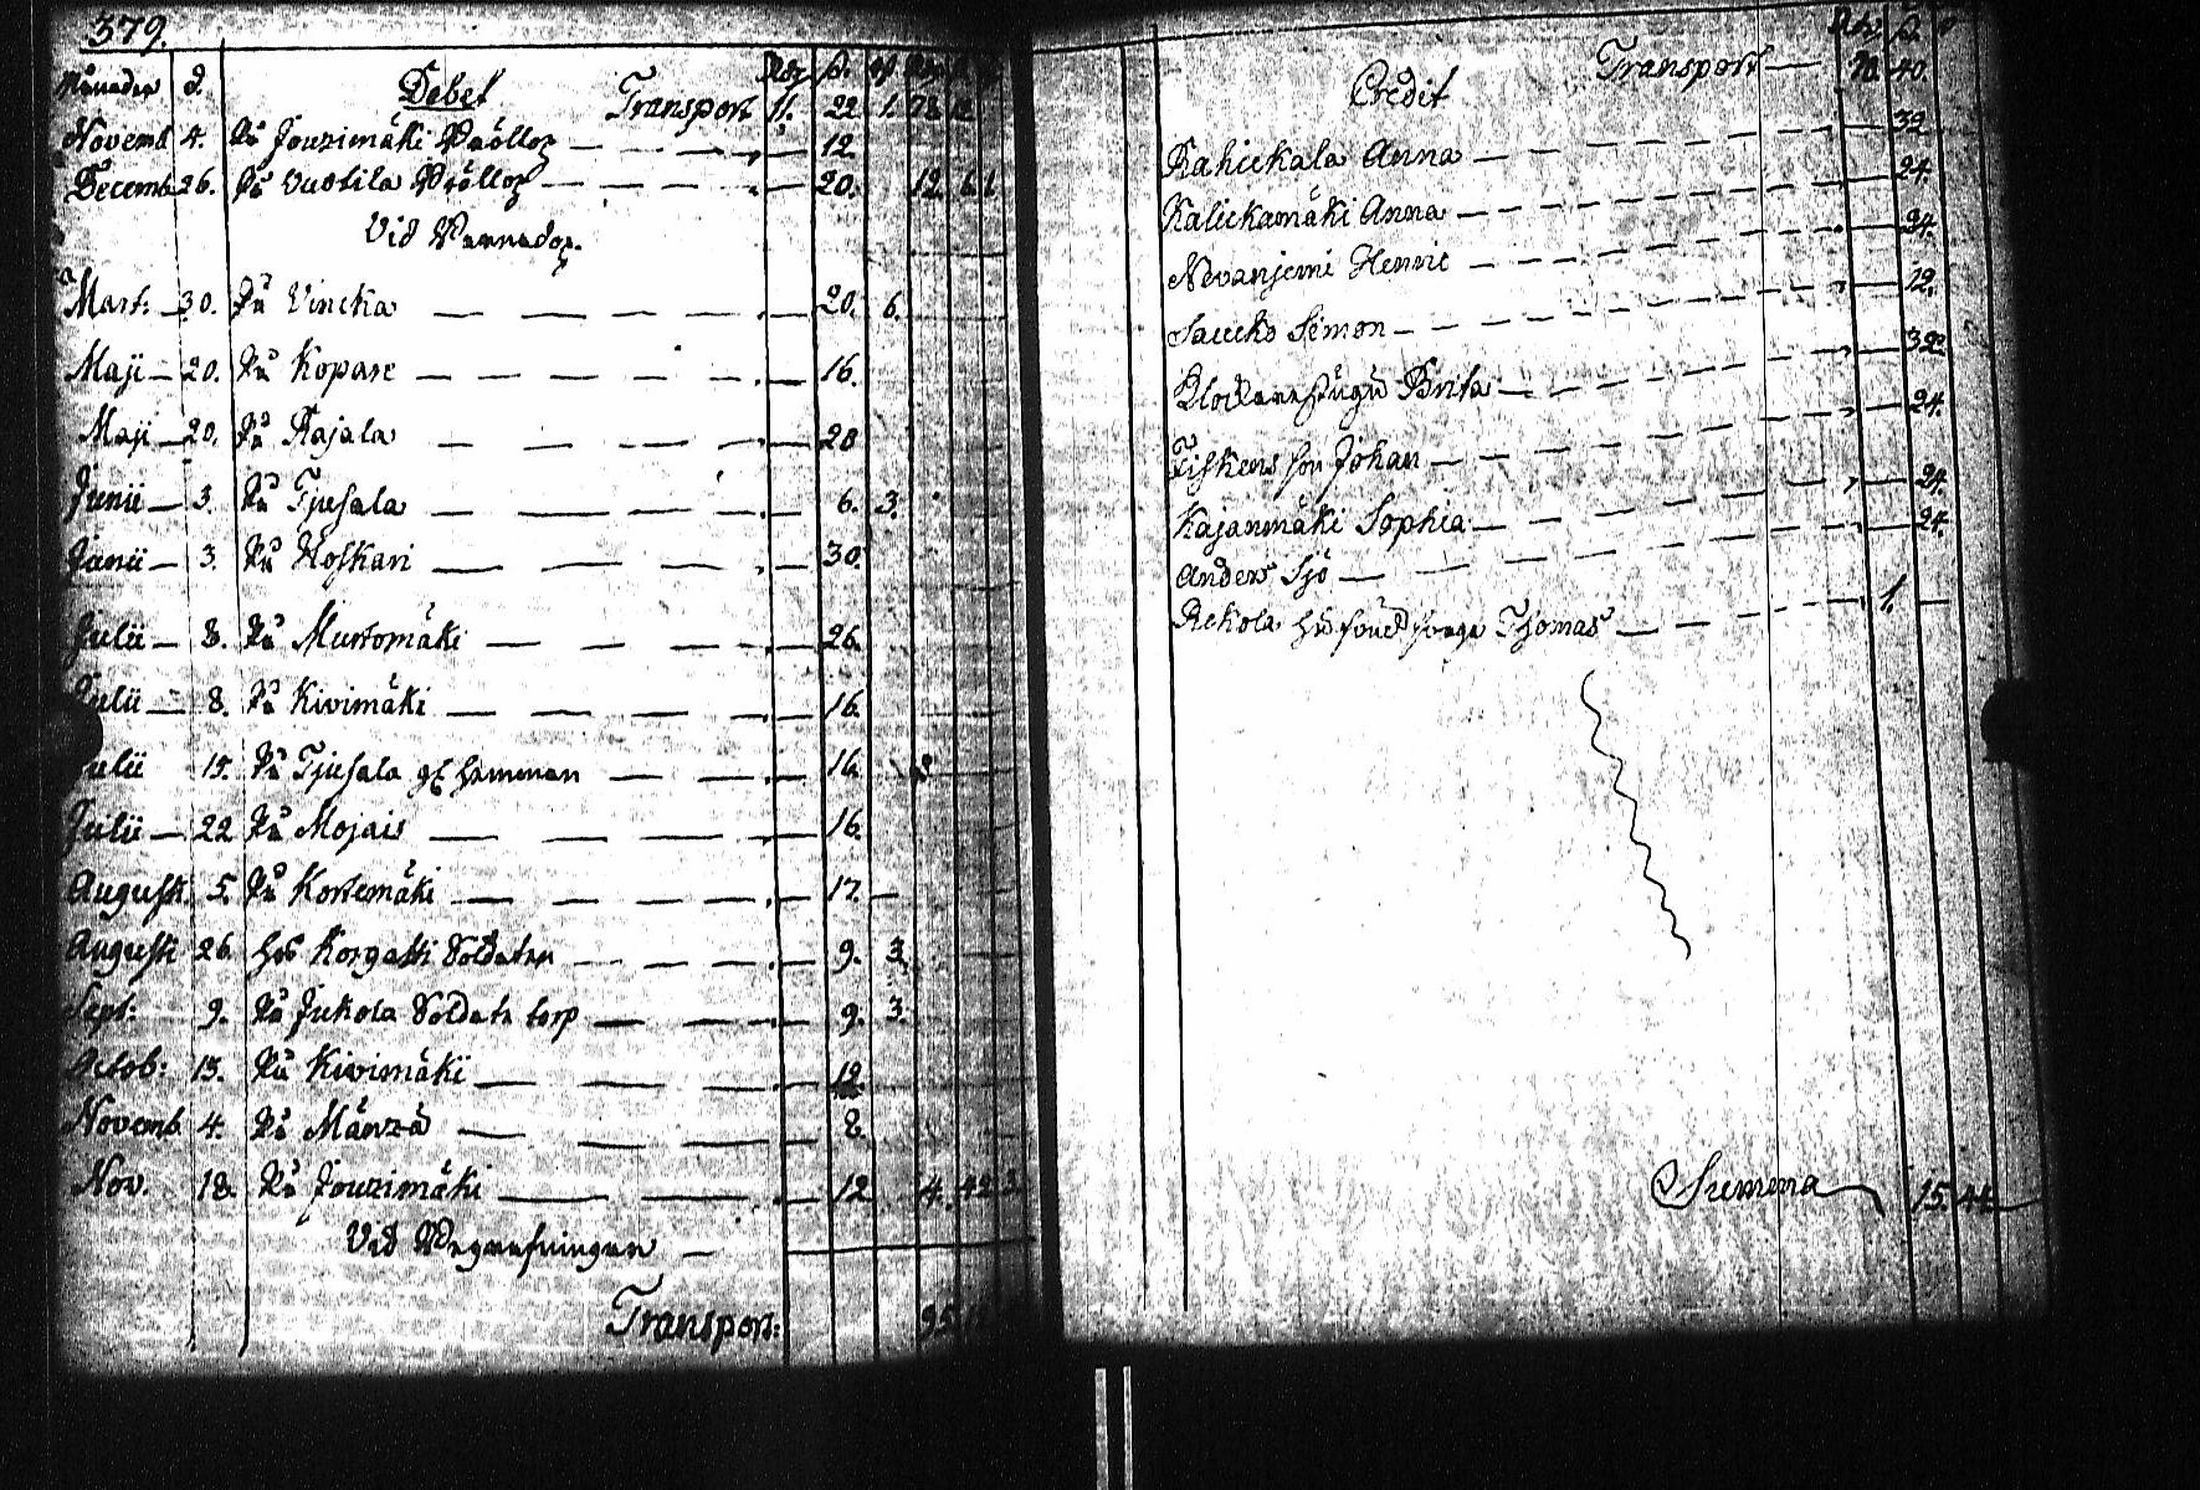 379.
Månader d. Debet Rdr ß. rst Rdr
Transport 11. 22 1. 78 12
Novemb 4. På Jouzimäki Bröllop 12.
Decemb 26. På Vustila Bröllop 20. 12. 6 1
Vid
Mart: 30. På Vincka 20. 6.
Maji 20. På Kopare 16.
Maji 20. På Rajala 20
Junii 3. På Tjusala 6. 3.
Junii 3. På Koskari 30.
Julii 8. På Murtomäki 26.
Julii 8. På Kivimäki 16.
Julii 15. På Tjusala 16.
Julii 22 På Mojais 16.
Augusti 5. På Kortemäki 17.
Augusti 26. hos Korgatti Soldaten 9. 3.
Sept: 9. På Jukola Soldats torp 9. 3.
Octob: 15. På Kivimäki 12.
Novemb 4. På Mänzä 8.
Nov. 18. På Jouzimäki 12 4. 42 3
Vid Begrafningar
Transport: 95
Rdr ß.
Credit Transport 40.
Kahickala Anna 32
Kalickamäki Anna 24.
Nevanjemi Henric 24.
Saucko Simon 12.
Brita 32
Fiskens son Johan 24.
Kajanmäki Sophia 24.
Anders Sjö 24.
Rekola Thomas 1.
Summa 15. 44